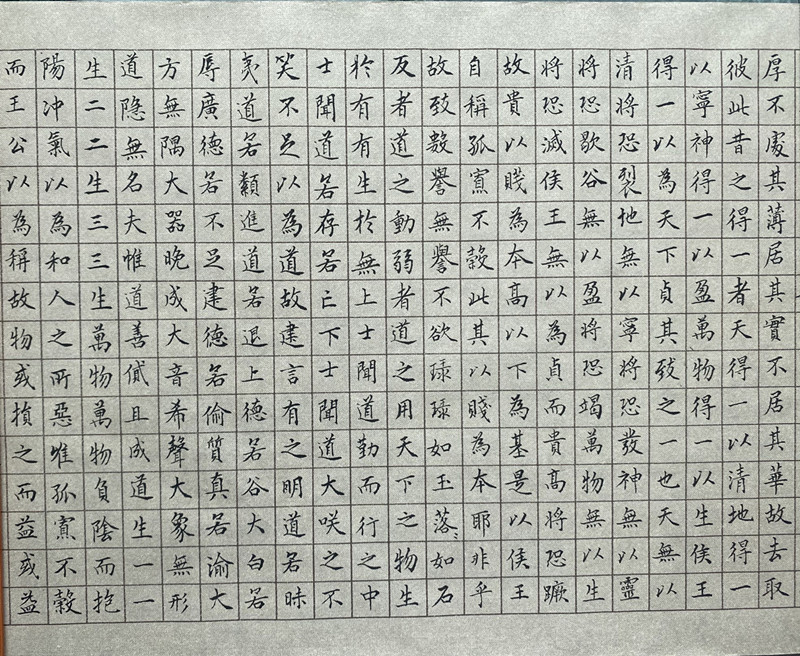 厚不處其薄居其實不居其華故去取
彼此昔之得一者天得一以清地得一
以寧神得一以盈萬物得一以生侯王
得一以為天下貞其致之一也天無以
清將恐裂地無以寧將恐發神無以靈
將恐歇谷無以盈將恐竭萬物無以生
將恐滅侯王無以為貞而貴高將恐蹶
故貴以賤為本高以下為基是以侯王
自稱孤寡不穀此其以賤為本耶非乎
故致數譽無譽不欲琭琭如玉落〻如石
反者道之動弱者道之用天下之物生
於有有生於無上士聞道勤而行之中
士聞道若存若亡下士聞道大咲之不
笑不足以為道故建言有之明道若昧
夷道若纇進道若退上德若谷大白若
辱廣德若不足建德若偷質真若渝大
方無隅大器晚成大音希聲大象無形
道隐無名夫惟道善貸且成道生一一
生二二生三三生萬物萬物負陰而抱
陽冲氣以為和人之所惡惟孤寡不穀
而王公以為稱故物或損之而益或益